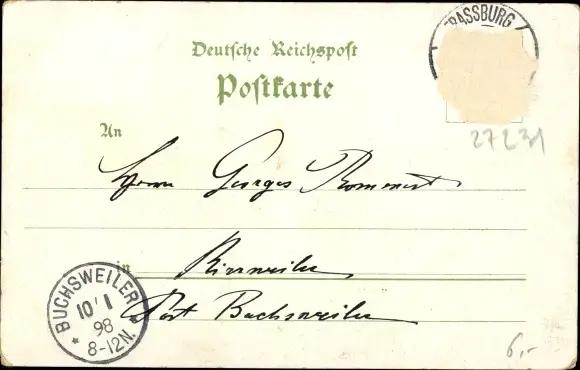 Deutsche Reichspost
Postkarte
RASSBURG
27231
An
Herrn Georges Rommert
in Rirrweiler
Post Buchsweiler
BUCHSWEILER
10 1
98
8-12N.
6,-